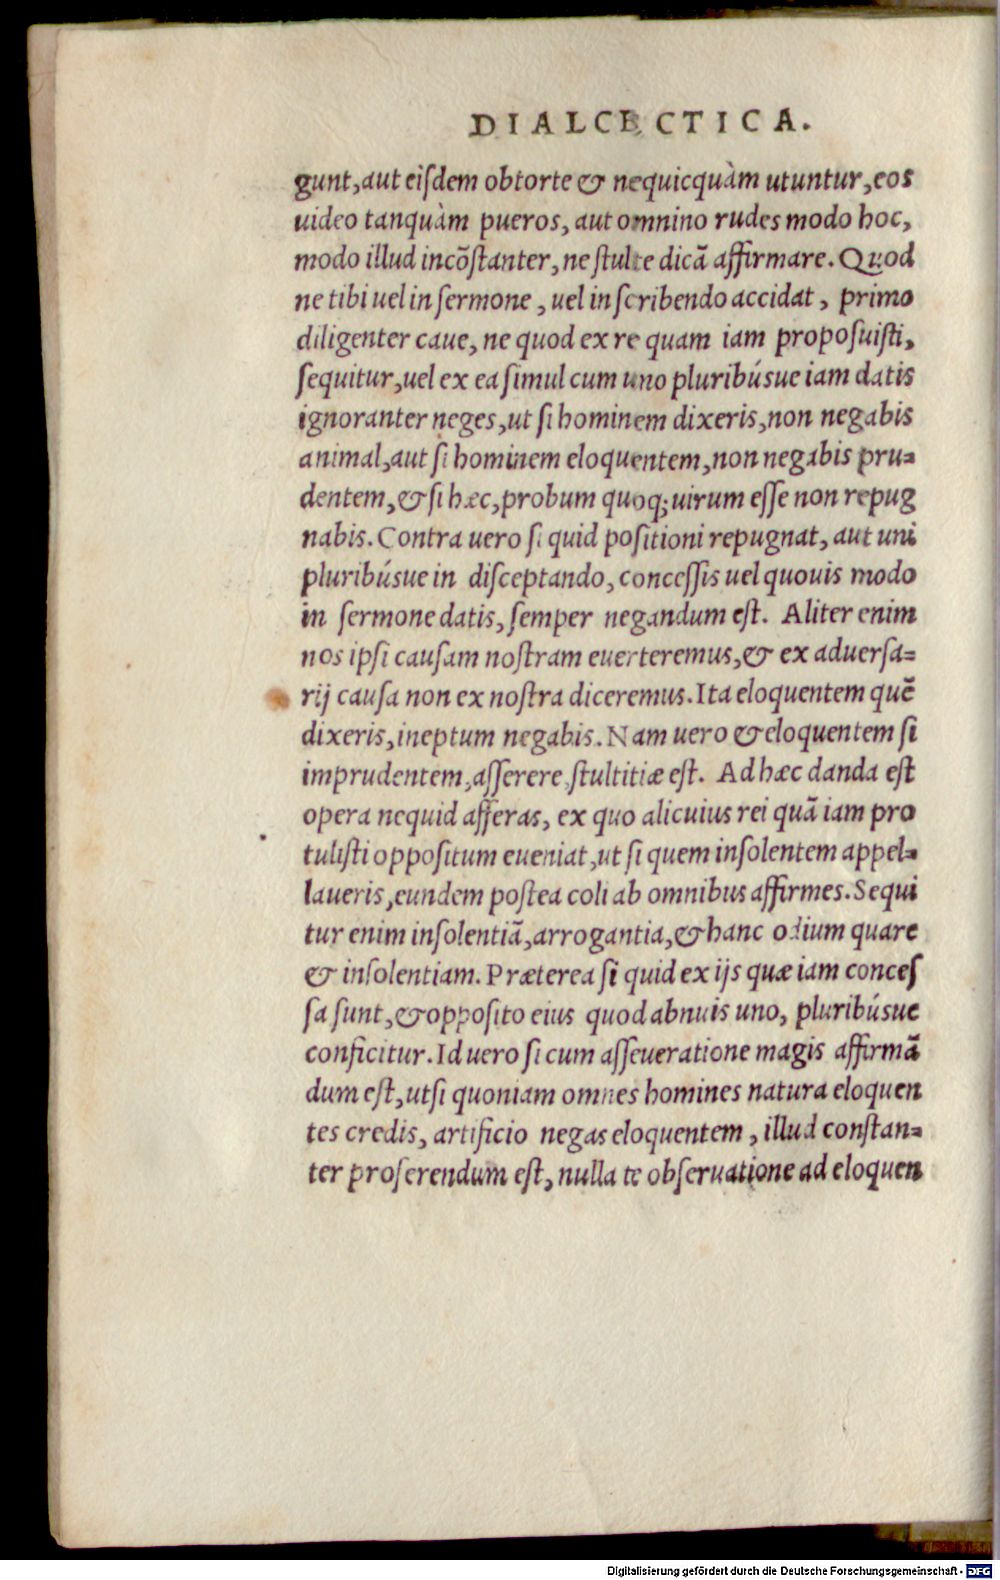 DIALCECTICA.
gunt, aut eiſdem obtorte & nequicquàm utuntur, eos
uideo tanquàm pueros, aut omnino rudes modo hoc,
modo illud incõſtanter, ne ſtulte dicã affirmare. Quod
ne tibi uel in ſermone, uel in ſcribendo accidat, primo
diligenter caue, ne quod ex re quam iam propoſuiſti,
ſequitur, uel ex ea ſimul cum uno pluribúsue iam datis
ignoranter neges, ut ſi hominem dixeris, non negabis
animal, aut ſi hominem eloquentem, non negabis pru=
dentem, & ſi hæc, probum quoq; uirum eſſe non repug
nabis. Contra uero ſi quid poſitioni repugnat, aut uni
pluribúsue in diſceptando, conceſſis uel quouis modo
in ſermone datis, ſemper negandum eſt. Aliter enim
nos ipſi cauſam noſtram euerteremus, & ex aduerſa=
rij cauſa non ex noſtra diceremus. Ita eloquentem quẽ
dixeris, ineptum negabis. Nam uero & eloquentem ſi
imprudentem, aſſerere ſtultitiæ eſt. Ad hæc danda eſt
opera nequid afferas, ex quo alicuius rei quã iam pro
tuliſti oppoſitum eueniat, ut ſi quem inſolentem appel=
laueris, eundem poſtea coli ab omnibus affirmes. Sequi
tur enim inſolentiã, arrogantia, & hanc odium quare
& inſolentiam. Præterea ſi quid ex ijs quæ iam conceſ
ſa ſunt, & oppoſito eius quod abnuis uno, pluribúsue
conficitur. Id uero ſi cum aſſeueratione magis affirmã
dum eſt, utſi quoniam omnes homines natura eloquen
tes credis, artificio negas eloquentem, illud conſtan=
ter proſerendum eſt, nulla te obſeruatione ad eloquen
Digitalisierung gefördert durch die Deutsche Forschungsgemeinschaft - DFG